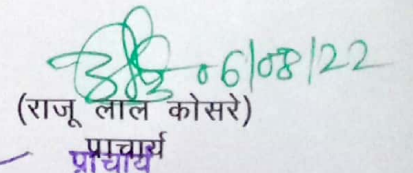 06/08/22
(राजू लाल कोसरे)
प्राचार्य
प्राचार्य